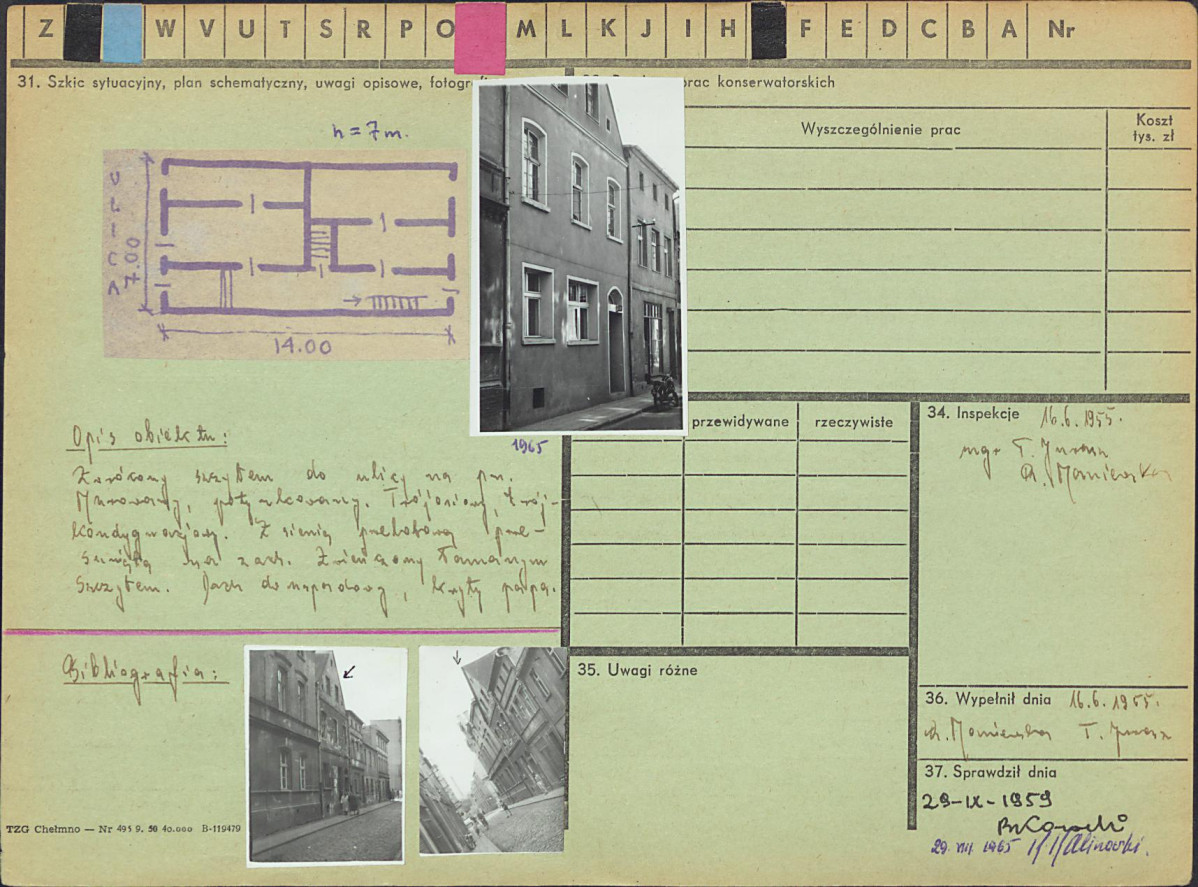 Z W V U T S R P O M L K J I H F E D C B A Nr
31. Szkic sytuacyjny, plan schematyczny, uwagi opisowe, fotogr
prac konserwatorskich
h = 7 m.
ULICA
7.00
14.00
1965
Wyszczególnienie prac
Koszt
tys. zł
przewidywane
rzeczywiste
Opis obiektu:
szczytem do ulicy na pn.
Murowany, potynkowany. Trójosiowy, trój-
kondygnacjowy. Z sienią przelotową prze-
suniętą na zach. Zwieńczony łamanym
szczytem. Dach dwuspadowy, kryty papą.
Bibliografia:
TZG Chełmno — Nr 495 9. 58 40.000 B-119479
34. Inspekcje 16.6.1955.
mgr T.
35. Uwagi różne
36. Wypełnił dnia 16.6.1955.
T.
37. Sprawdził dnia
29-IX-1959
29. VIII 1965 Kalinowski.